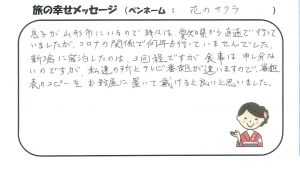 旅の幸せメッセージ （ペンネーム ： 花のサクラ ）
息子が山形市にいるので 時々は 愛知県から 直通で行って
いましたが、コロナの関係で何年か行っていませんでした。
新潟に宿泊したのは、3回程ですが 食事は 申し分な
いのですが 私達の所とテレビ番組が違いますので、番組
表のコピーを お部屋に 置いて 戴けると良いと思いました。